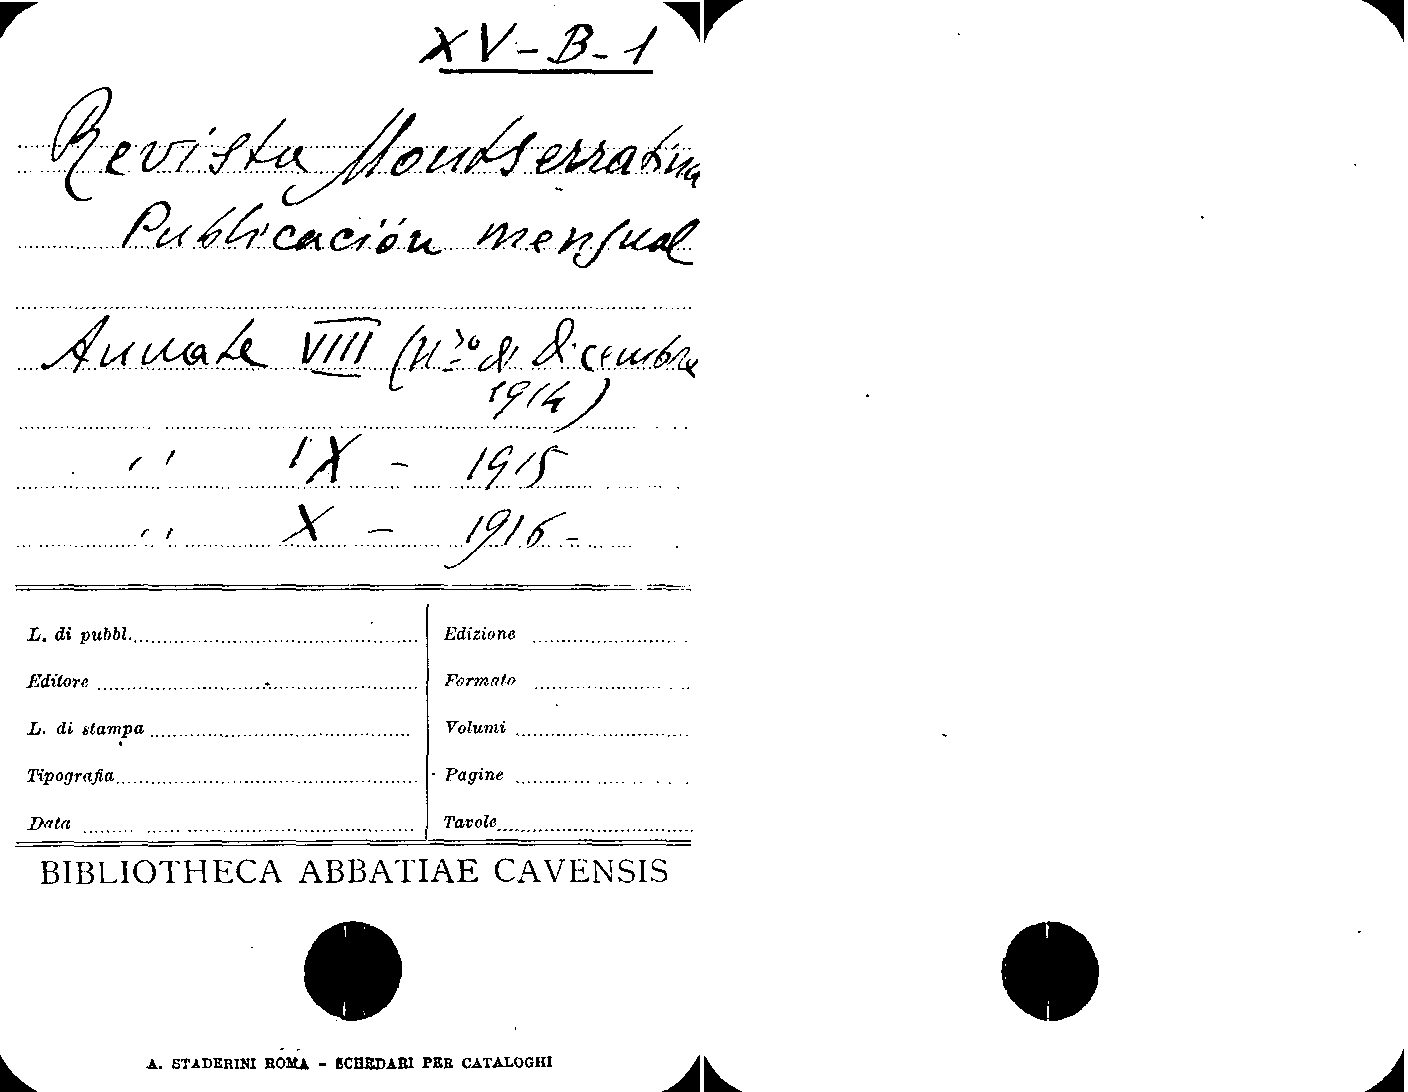 XV-B-1
Revista Montserratina
Publicación mensual
Annate VIII (Nro di Dicembre
1914)
" IX - 1915
" X - 1916 -
L. di pubbl.
Edizione
Editore
Formato
L. di stampa
Volumi
Tipografia
Pagine
Data
Tavole
BIBLIOTHECA ABBATIAE CAVENSIS
A. STADERINI ROMA - SCHEDARI PER CATALOGHI